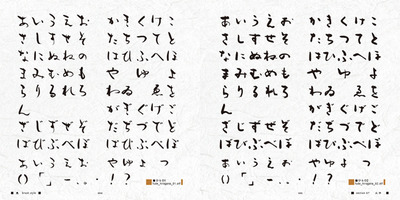 あいうえお かきくけこ
さしすせそ たちつてと
なにぬねの はひふへほ
まみむめも や ゆ よ
らりるれろ わゐ ゑを
ん がぎぐげご
ざじずぜぞ だぢづでど
ばびぶべぼ ぱぴぷぺぽ
ぁぃぅぇぉ ゃゅょっ
()「」ー、。・!?
あいうえお かきくけこ
さしすせそ たちつてと
なにぬねの はひふへほ
まみむめも や ゆ よ
らりるれろ わゐ ゑを
ん がぎぐげご
ざじずぜぞ だぢづでど
ばびぶべぼ ぱぴぷぺぽ
ぁぃぅぇぉ ゃゅょっ
()「」ー、。・!?